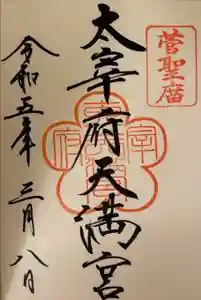 菅聖庿
太宰府天満宮
令和五年三月八日